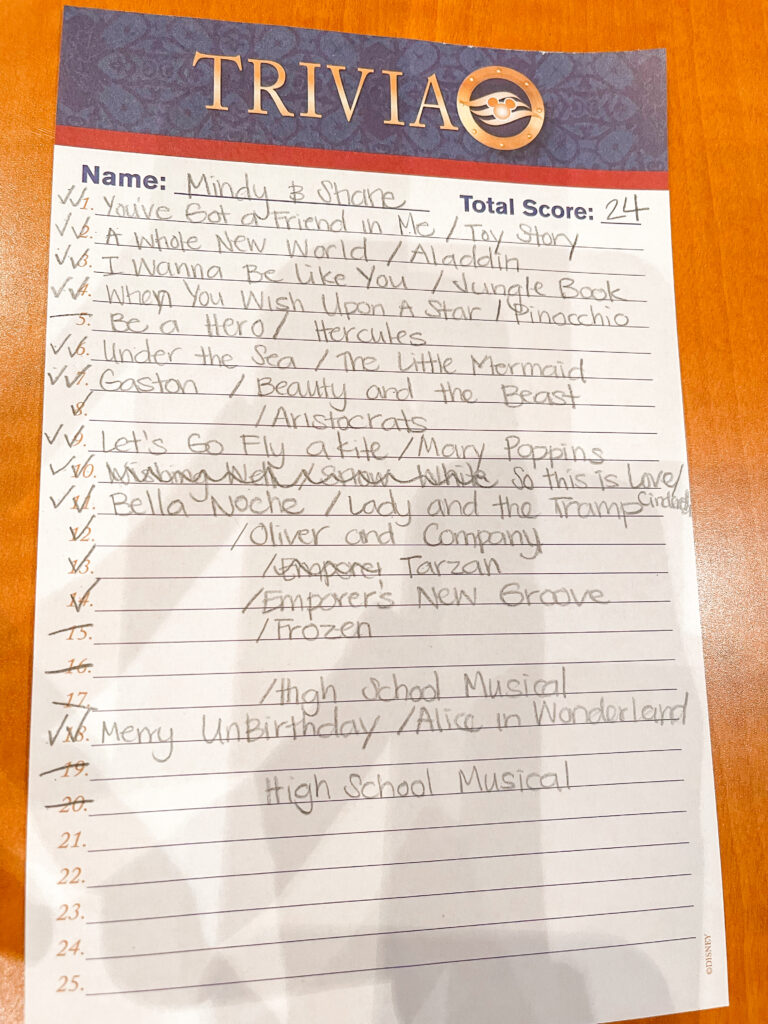 TRIVIA
Name: Mindy & Shane Total Score: 24
1. You've Got a Friend in Me / Toy Story
2. A Whole New World / Aladdin
3. I Wanna Be Like You / Jungle Book
4. When You Wish Upon A Star / Pinocchio
5. Be a Hero / Hercules
6. Under the Sea / The Little Mermaid
7. Gaston / Beauty and the Beast
8. / Aristocrats
9. Let's Go Fly a kite / Mary Poppins
10. Wishing Well / Snow White So this is Love /
11. Bella Noche / Lady and the Tramp
12. / Oliver and Company
13. / Emporer Tarzan
14. / Emporer's New Groove
15. / Frozen
16.
17. / High School Musical
18. Merry UnBirthday / Alice in Wonderland
19.
20. High School Musical
21.
22.
23.
24.
25.
©DISNEY